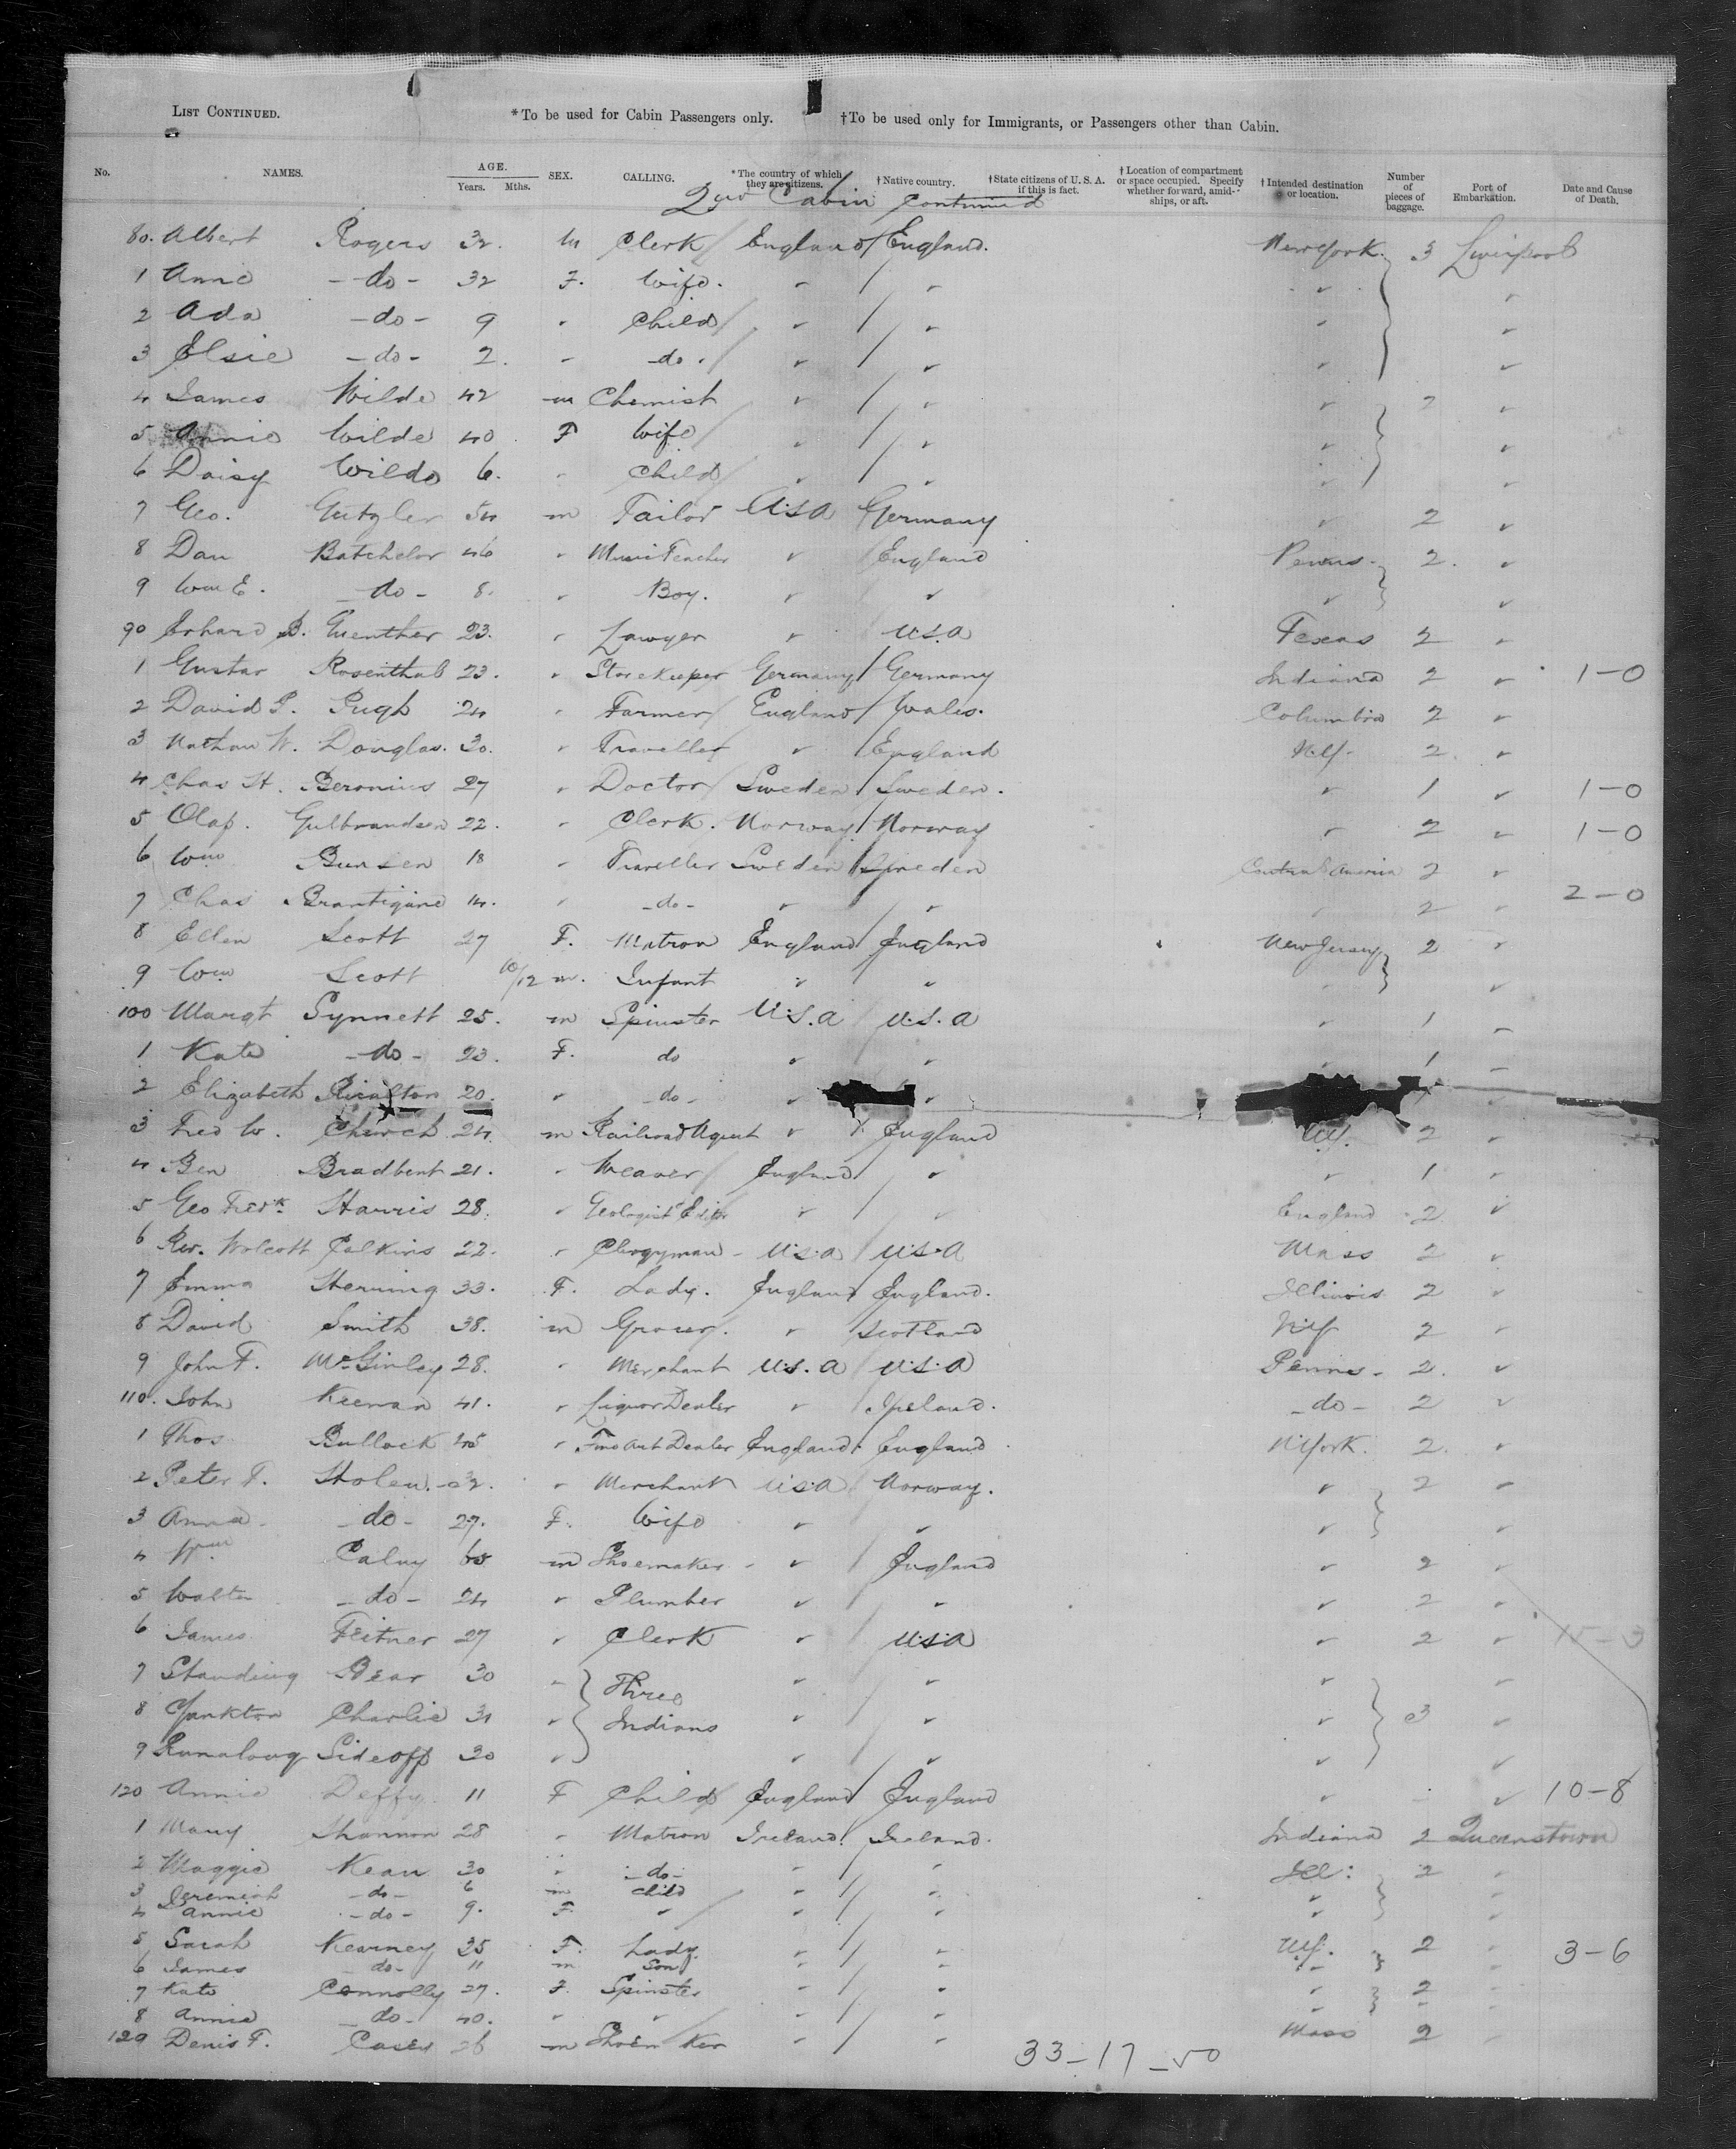 LIST CONTINUED. *To be used for Cabin Passengers only. †To be used only for Immigrants, or Passengers other than Cabin.
No. NAMES. AGE. Years. Mths. SEX. CALLING. *The country of which they are citizens. †Native country. †State citizens of U. S. A. if this is fact. †Location of compartment or space occupied. Specify whether forward, amid-ships, or aft. †Intended destination or location. Number of pieces of baggage. Port of Embarkation. Date and Cause of Death.
2nd Cabin Continued
80. Albert Rogers 32. M Clerk England England. New York. 3 Liverpool
1 Annie -do- 32 F. Wife.
2 Ada -do- 9 " Child
3 Elsie -do- 2. " -do-
4 James Wilde 42 m Chemist 2
5 Annie Wilde 40 F Wife
6 Daisy Wilde 6. Child
7 Geo. Gutzler 54 m Tailor USA Germany 2
8 Dan Batchelor 46 " Music Teacher " England Penns. 2.
9 Wm E. -do- 8. " Boy. " "
90 Erhard B. Guenther 23. " Lawyer " U.S.A Texas 2 "
1 Gustav Rosenthal 23. " Storekeeper Germany Germany Indiana 2 " 1-0
2 David P. Pugh 24 " Farmer England Wales. Columbia 2 "
3 Nathan W. Douglas. 30. " Traveller " England N.Y. 2 "
4 Chas H. Beronius 27 " Doctor Sweden Sweden. " 1 " 1-0
5 Olaf. Gulbrandsen 22. " Clerk. Norway Norway " 2 " 1-0
6 Wm Bunsen 18 " Traveller Sweden Sweden Central America 2 "
7 Chas Brantigane 14. " -do- " " 2 " 2-0
8 Ellen Scott 27 F. Matron England England New Jersey 2 "
9 Wm Scott 10/12 m. Infant " " "
100 Margt Synnett 25. m Spinster U.S.A U.S.A " 1 "
1 Kate -do- 23. F. do " " 1 "
2 Elizabeth 20. " -do- " "
3 Fred W. Church 24. m Railroad Agent " England N.Y. 2 "
4 Ben Bradbent 21. " Weaver England " " 1 "
5 Geo Fredk. Harris 28. " Geologist Editor " " England 2 "
6 Rev. Wolcott Calkins 22. " Clergyman - U.S.A U.S.A Mass 2 "
7 Emma Herring 33. F. Lady. England England. Illinois 2 "
8 David Smith 38. m Grocer. " Scotland N.Y 2 "
9 John F. McGinley 28. " Merchant U.S.A U.S.A Penns. 2. "
110. John Keenan 41. " Liquor Dealer " Ireland. -do- 2 "
1 Thos Bullock 45 " Fine Art Dealer England England N.York. 2. "
2 Peter T. Holen. 32. " Merchant U.S.A Norway. " 2 "
3 Anna -do- 27. F. Wife " " " "
4 Wm. Caluy 60 m Shoemaker " England " 2 "
5 Walter -do- 24 " Plumber " " " 2 "
6 James Feitner 27 " Clerk " U.S.A " 2 "
7 Standing Bear 30 " Three " " " "
8 Yankton Charlie 31 " Indians " " " 3 "
9 Runalong Sideoff 30 " " " " "
120 Annie Deffy 11 F Child England England " - " 10-8
1 Mary Shannon 28 " Matron Ireland. Ireland. Indiana 2 Queenstown
2 Maggie Kean 30 " -do- " " Ill: 2 "
3 Jeremiah -do- 6 m child " " " "
4 Annie -do- 9. F. " " " " "
5 Sarah Kearney 35 F. Lady. " " N.Y. 2 " 3-6
6 James -do- 11 m Son " " " "
7 Kate Connolly 27. F. Spinster " " " 2 "
8 Annie -do- 40. " " " " " " "
129 Denis F. Casey 26 m " " Mass 2 "
33-17-50